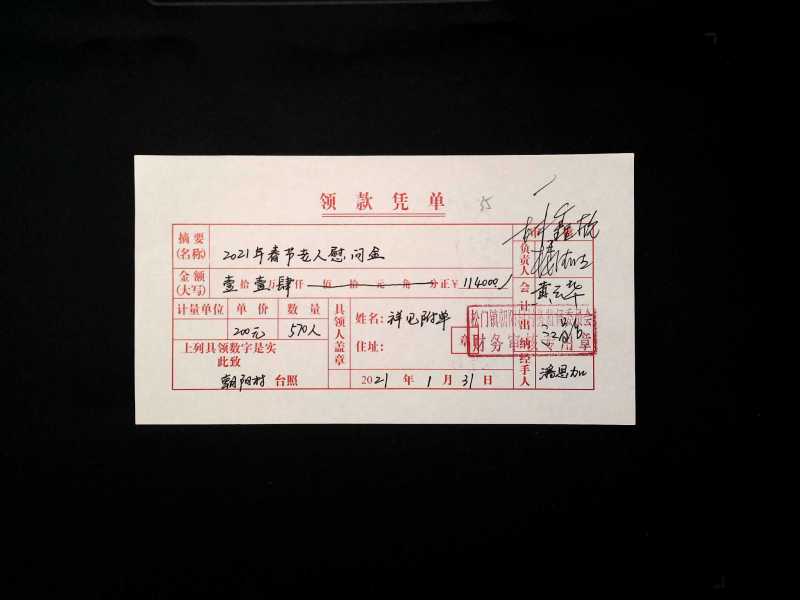 领款凭单
35
摘要(名称) 2021年春节老人慰问金
金额(大写) 壹拾壹万肆仟 佰 拾 元 角 分正¥114000/
计量单位 单价 数量
200元 570人
上列具领数字是实
此致
朝阳村 台照
具领人盖章
姓名: 祥见附单
住址:
章
2021年1月31日
负责人
会计 出纳
经手人 潘思加
财务审核专用章